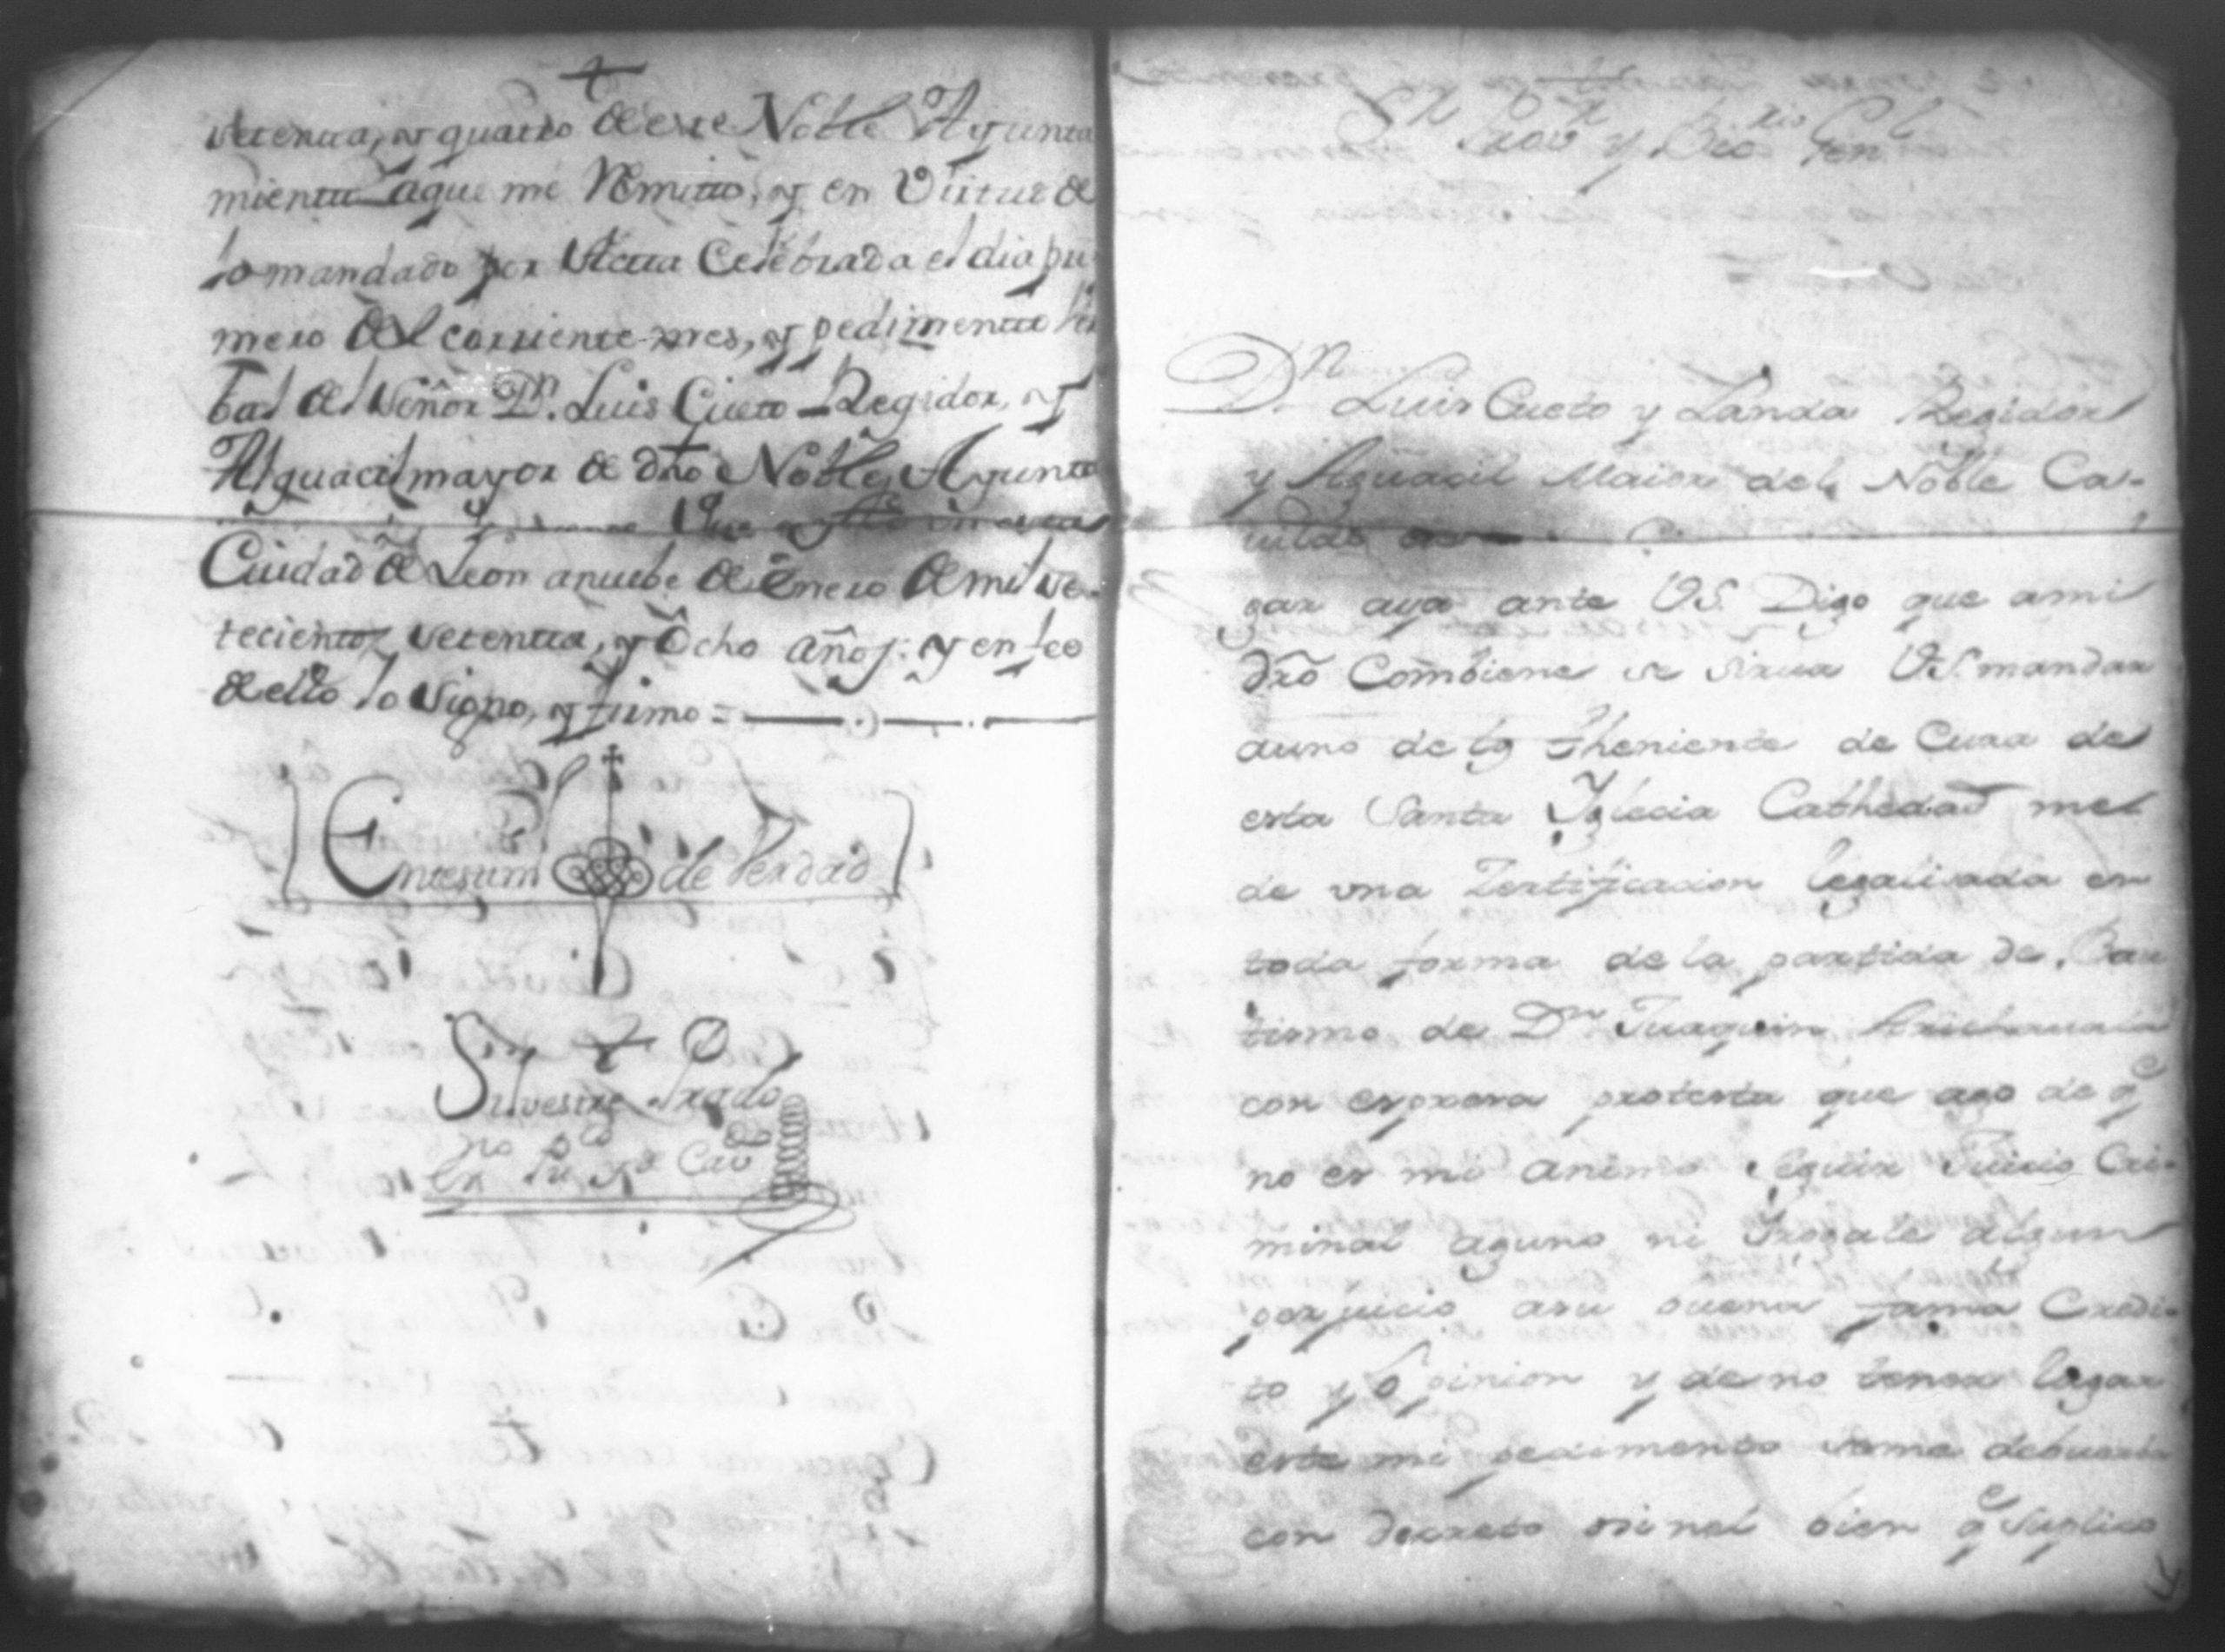 setenta, y quatro de este Noble Ayunta
miento aque me Remitto, y en Virtud de
lo mandado por Acta Celebrada el dia pri
mero del corriente mes, y pedimento Ver
bal del Señor Dn. Luis Cueto Regidor, y
Alguacil mayor de dho Noble Ayunta
Ciudad de Leon anuebe de Enero de mil se
tecientos setenta, y Ocho años: y en fee
de ello lo signo, y firmo =
Entestim de Verdad
Silvestre Prado
Sr Prov y Vic Gen
Dn Luis Cueto y Landa Regidor
y Alguacil Maior del Noble Ca-
uildo
gar aya ante VS. Digo que ami
dro Combiene se sirua VS. mandar
auno de los Theniente de Cura de
esta Santa Yglecia Cathedral me
de vna Zertificacion legalisada en
toda forma de la partida de Bau
tismo de Dn Juaquin
con espresa protesta que ago de qe
no es mi animo seguir Juicio Cri-
minal aguno ni Yrogale algun
perjuicio asu buena fama Credi-
to y Opinion y de no tener lugar
este mi pedimento seme debuelba
con decreto orinal bien qe Suplico